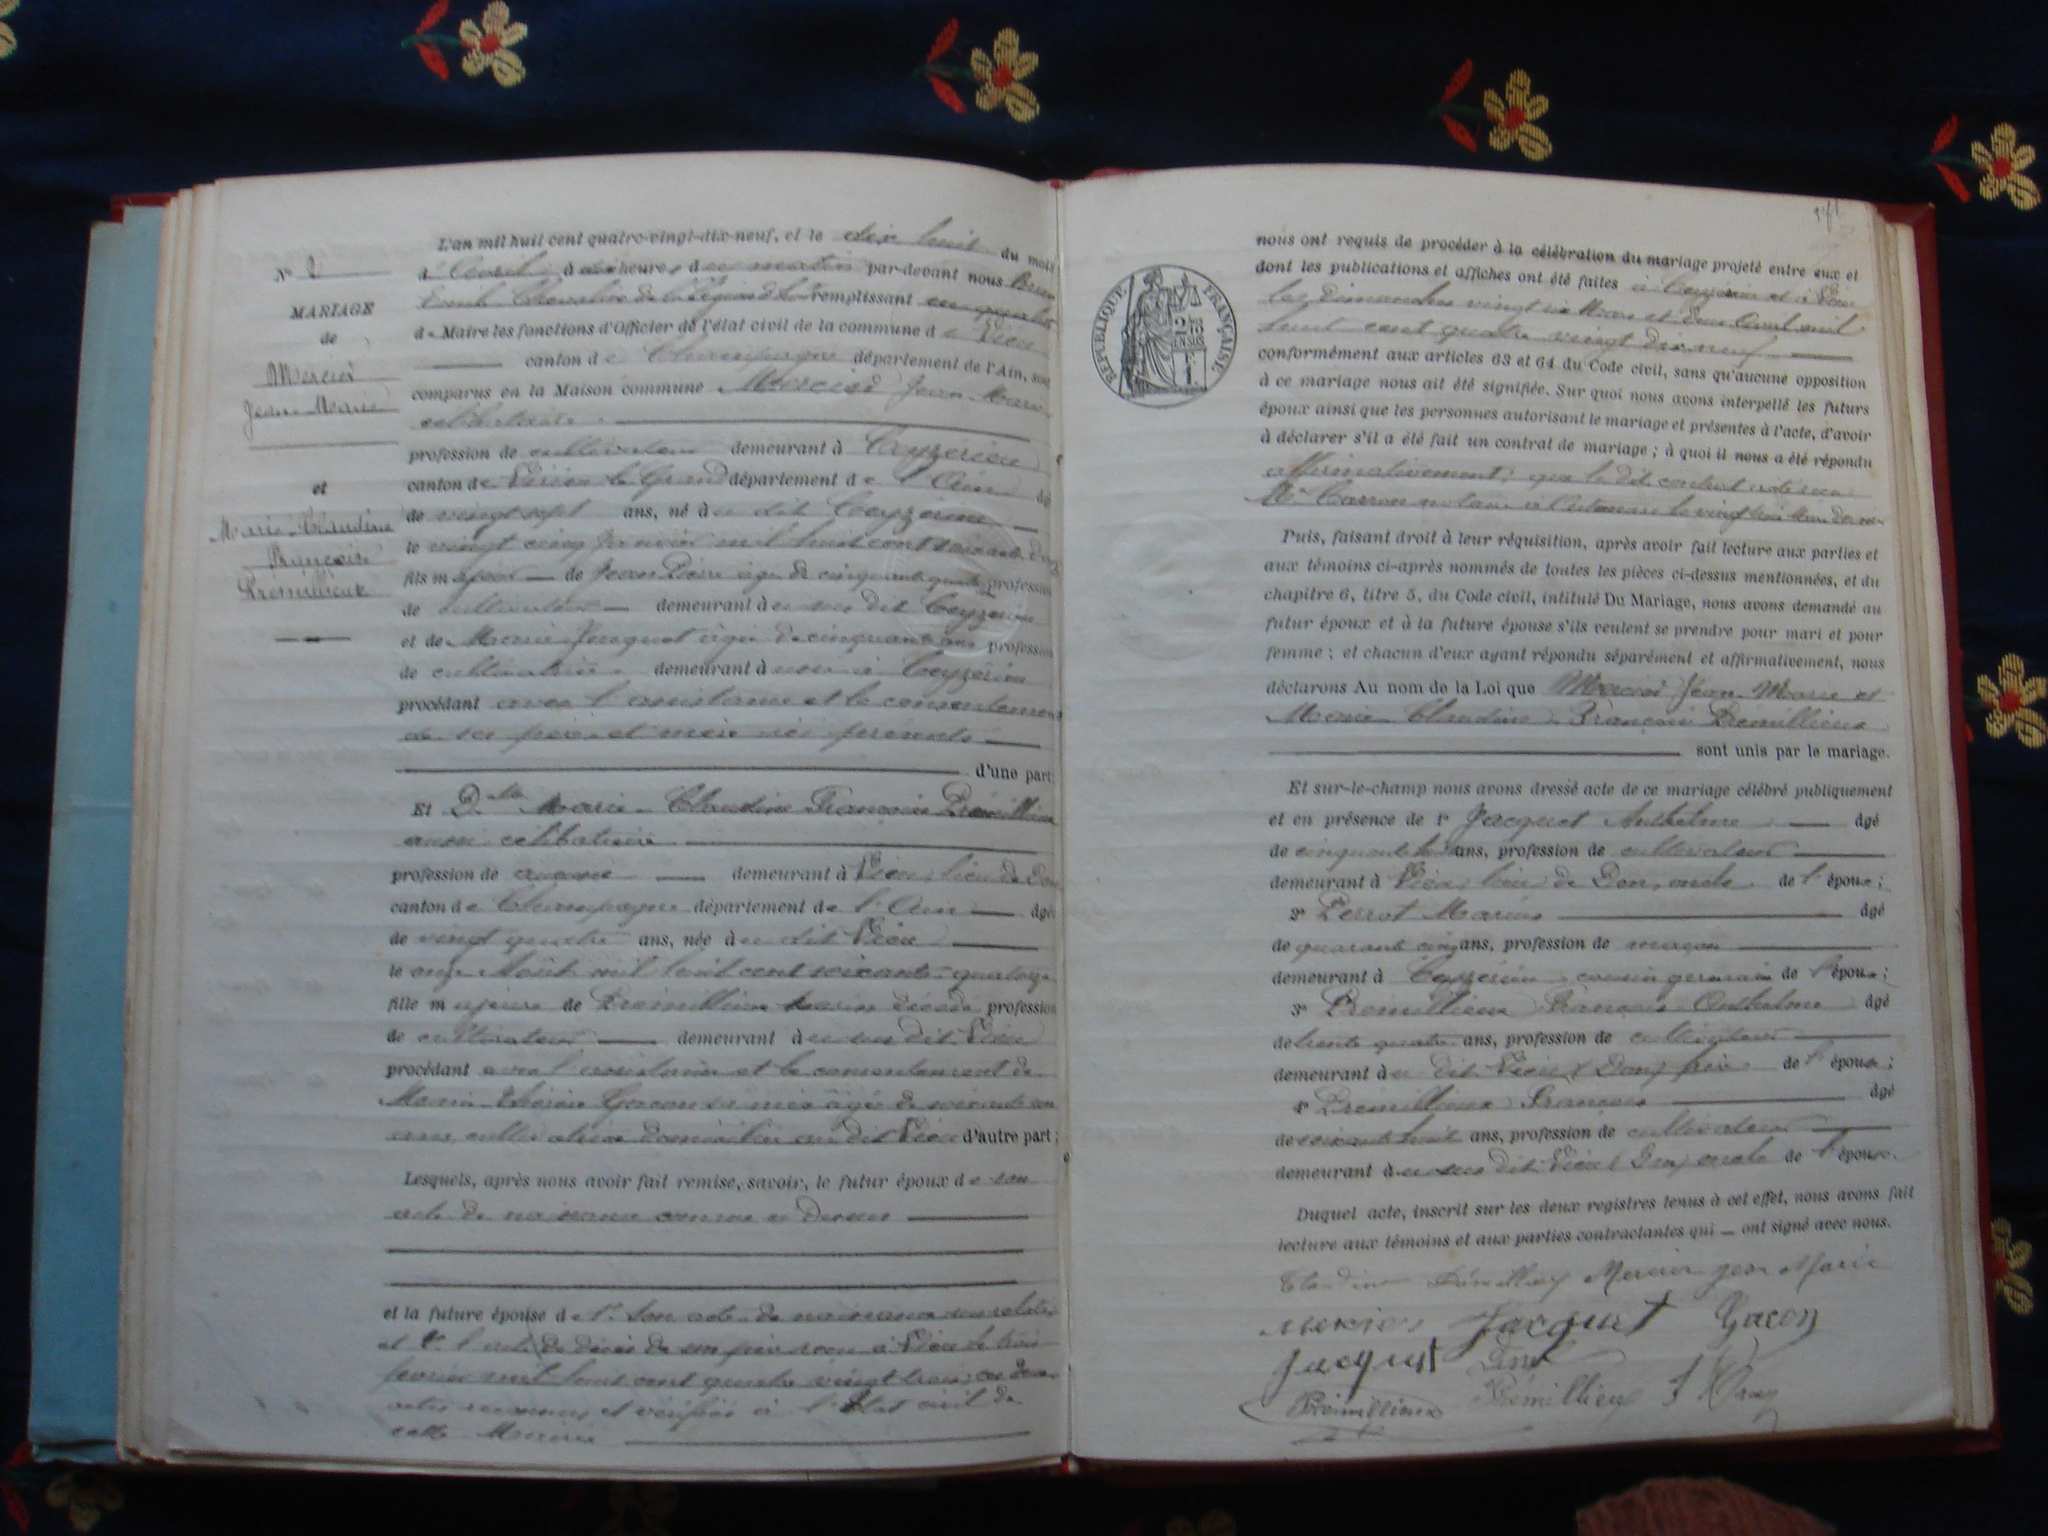 N° 2
MARIAGE
de
Mercier
Jean Marie
et
Marie Claudine
Françoise
Prémillieux
L'an mil huit cent quatre-vingt-dix-neuf, et le dix huit du mois
d' Avril, à heures du matin par-devant nous
Chevalier de la Légion d' remplissant en qualité
de Maire les fonctions d'Officier de l'état civil de la commune de Vieu
canton de Champagne département de l'Ain, sont
comparus en la Maison commune Mercier Jean Marie
célibataire
profession de cultivateur demeurant à Ceyzérieu
canton de Virieu le Grand département de l'Ain âgé
de vingt sept ans, né au dit Ceyzérieu
le vingt cinq Janvier mil huit cent soixante douze
fils majeur de Jean Pierre âgé de cinquante quatre profession
de cultivateur demeurant au sus dit Ceyzérieu
et de Marie Jacquet âgée de cinquante ans profession
de cultivatrice demeurant à Ceyzérieu
procédant avec l'assistance et le consentement
de ses père et mère ici présents
d'une part;
Et Dlle Marie Claudine Françoise Prémillieux
aussi célibataire
profession de demeurant à Vieu, lieu de Don
canton de Champagne département de l'Ain âgée
de vingt quatre ans, née au dit Vieu
le onze Août mil huit cent soixante-quatorze
fille majeure de Prémillieux décédé profession
de cultivateur demeurant au sus dit Vieu
procédant avec l'assistance et le consentement de
Marie Thérèse Gacon sa mère âgée de soixante
ans, cultivatrice domiciliée au dit Vieu d'autre part;
Lesquels, après nous avoir fait remise, savoir, le futur époux de son
acte de naissance comme ci dessus
et la future épouse de 1° Son acte de naissance
et 2° l'acte de décès de son père à Vieu le trois
février mil huit cent quatre vingt trois; ces deux
actes reconnus et vérifiés à l'état civil de
cette Mairie
171
nous ont requis de procéder à la célébration du mariage projeté entre eux et
dont les publications et affiches ont été faites à Ceyzérieu et à Vieu
les Dimanches vingt six Mars et deux Avril mil
huit cent quatre vingt dix neuf
RÉPUBLIQUE FRANÇAISE
2/10 EN SUS
1 F.
conformément aux articles 63 et 64 du Code civil, sans qu'aucune opposition
à ce mariage nous ait été signifiée. Sur quoi nous avons interpellé les futurs
époux ainsi que les personnes autorisant le mariage et présentes à l'acte, d'avoir
à déclarer s'il a été fait un contrat de mariage; à quoi il nous a été répondu
affirmativement; que le dit contrat
Me Carron notaire à Artemare le vingt
Puis, faisant droit à leur réquisition, après avoir fait lecture aux parties et
aux témoins ci-après nommés de toutes les pièces ci-dessus mentionnées, et du
chapitre 6, titre 5, du Code civil, intitulé Du Mariage, nous avons demandé au
futur époux et à la future épouse s'ils veulent se prendre pour mari et pour
femme; et chacun d'eux ayant répondu séparément et affirmativement, nous
déclarons Au nom de la Loi que Mercier Jean Marie et
Marie Claudine Françoise Prémillieux
sont unis par le mariage.
Et sur-le-champ nous avons dressé acte de ce mariage célébré publiquement
et en présence de 1° Jacquet Anthelme âgé
de cinquante ans, profession de cultivateur
demeurant à Vieu, lieu de Don, oncle de l'époux;
2° Perrot Marius âgé
de quarante cinq ans, profession de maçon
demeurant à Ceyzérieu cousin germain de l'époux;
3° Prémillieux François Anthelme âgé
de trente quatre ans, profession de cultivateur
demeurant au dit Vieu (Don) frère de l'épouse;
4° Prémillieux François âgé
de soixante huit ans, profession de cultivateur
demeurant au sus dit Vieu (Don) oncle de l'épouse.
Duquel acte, inscrit sur les deux registres tenus à cet effet, nous avons fait
lecture aux témoins et aux parties contractantes qui ont signé avec nous.
Claudine Prémillieux Mercier Jean Marie
Mercier Jacquet Gacon
Jacquet
Prémillieux Prémillieux